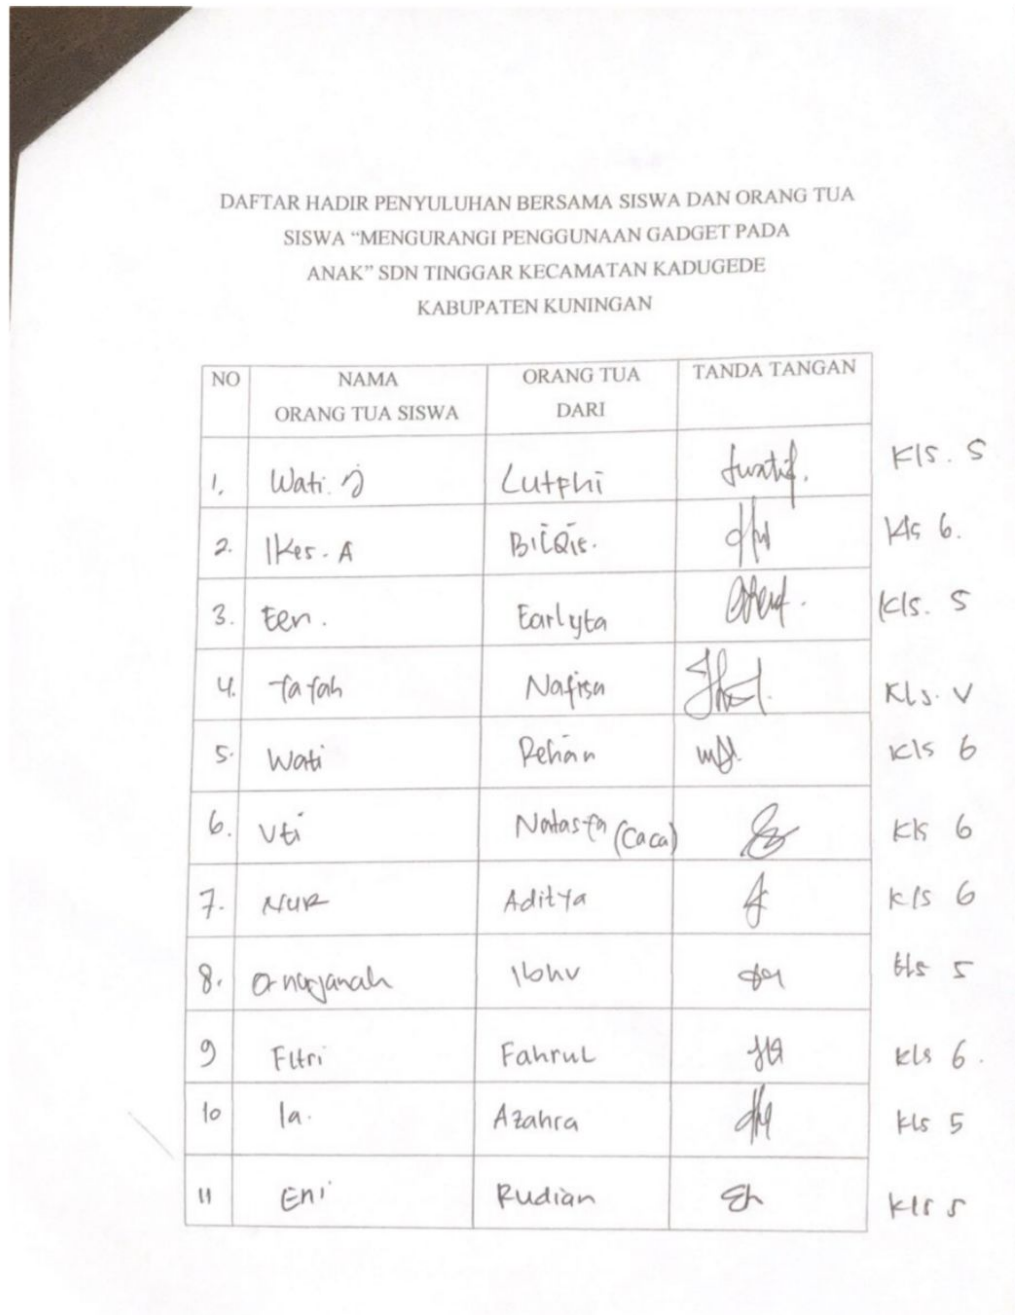 DAFTAR HADIR PENYULUHAN BERSAMA SISWA DAN ORANG TUA
SISWA “MENGURANGI PENGGUNAAN GADGET PADA
ANAK” SDN TINGGAR KECAMATAN KADUGEDE
KABUPATEN KUNINGAN
NO NAMA ORANG TUA SISWA ORANG TUA DARI TANDA TANGAN
1. Wati. Lutphi Kls. 5
2. Ikes. A BilQis. Kls 6.
3. Een. Earlyta Kls. 5
4. Tatah Nafisa Kls. V
5. Wati Rehan Kls 6
6. Uti Natasya (Caca) Kls 6
7. NUR Aditya Kls 6
8. kls 5
9 Fitri Fahrul kls 6.
10 Ia. Azahra kls 5
11 Eni Rudian kls 5